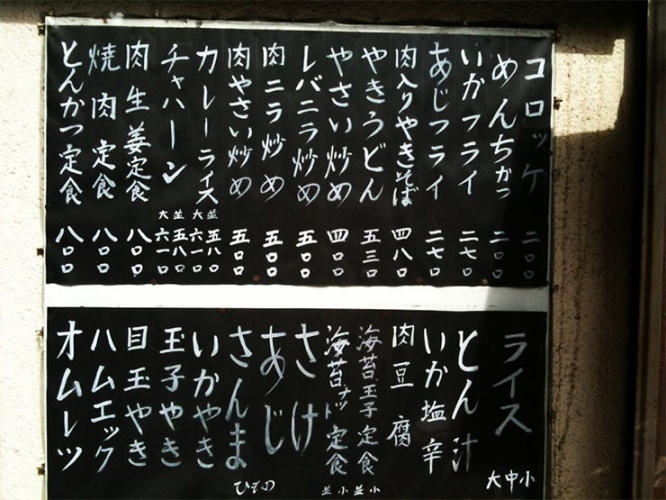 コロッケ 二〇〇
めんちかつ 二〇〇
いかフライ 二七〇
あじフライ 二七〇
肉入りやきそば 四八〇
やきうどん 五三〇
やさい炒め 四〇〇
レバニラ炒め 五〇〇
肉ニラ炒め 五〇〇
肉やさい炒め 五〇〇
カレーライス 並 五八〇 大 六一〇
チャハーン 並 五八〇 大 六一〇
肉生姜定食 八〇〇
焼肉定食 八〇〇
とんかつ定食 八〇〇
ライス 大中小
とん汁
いか塩辛
肉豆腐
海苔玉子定食 並小
海苔ナット定食 並小
さけ
あじ
さんま ひもの
いかやき
玉子やき
目玉やき
ハムエック
オムレツ